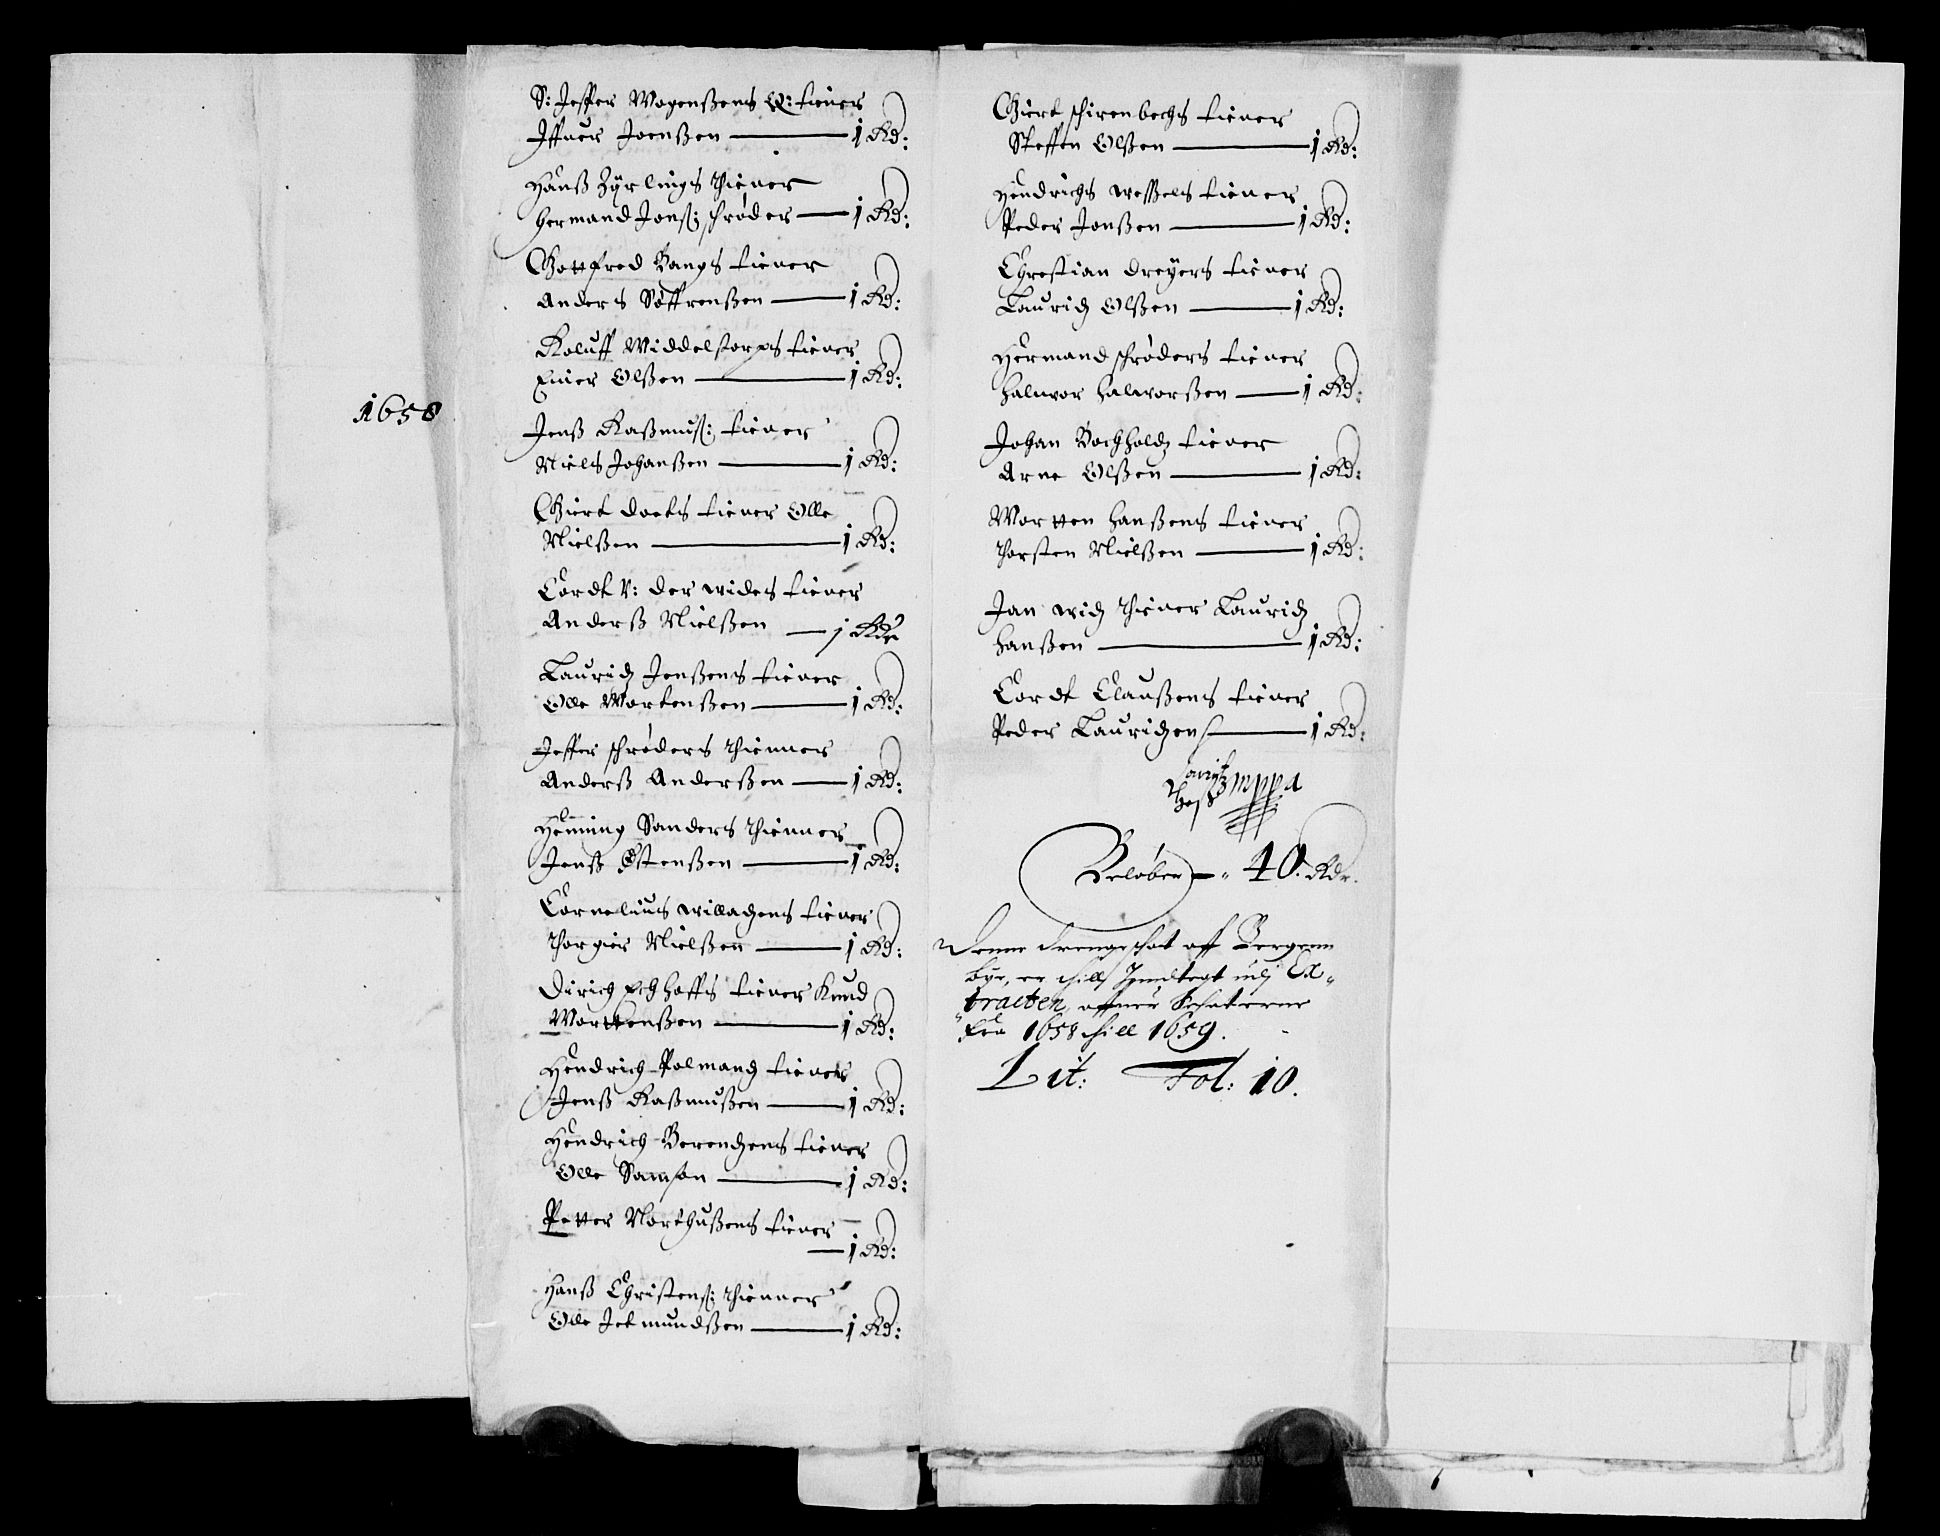 1658
S: Jesper Mogenßens Q: tiener
Iffuer Joenßen — 1 Rd:
Hanß Zÿrlings thiener
hermand Jonß: schrøder — 1 Rd:
Gottfred Bangs tiener
Anders Søffrenßen — 1 Rd:
Roluff Middelstorps tiener
Einer Olßen — 1 Rd:
Jenß Raßmuß: tiener
Niels Johanßen — 1 Rd:
Giert doets tiener Olle
Nielßen — 1 Rd:
Cordt v: der wides tiener
Anderß Nielßen — j Rdr
Lauridz Jenßens tiener
Olle Mortenßen — 1 Rd:
Jesper schrøders thienner
Anderß Anderßen — 1 Rd:
Henning Sanders thienner
Jenß Østenßen — 1 Rd:
Cornelius willadzens tiener
thorgier Nielßen — 1 Rd:
Dirich Echhoffs tiener Knud
Morttenßen — 1 Rd:
Hendrich Polmandz tieners
Jenß Raßmußen — 1 Rd:
Hendrich Berendzens tiener
Olle Samson — 1 Rd:
Petter Northußens tiener
— 1 Rd:
Hanß Christenß: thienner
Olle Jetmundßen — 1 Rd:
Giert schirenbechs tiener
Steffen Olßen — 1 Rd:
Hendrichs weßels tiener
Peder Jonßen — 1 Rd:
Chrestian dreÿers tiener
Lauridz Olßen — 1 Rd:
Hermand schrøders tiener
halwor halworßen — 1 Rd:
Johan Bochholdz tiener
Arne Olßen — 1 Rd:
Mortten hanßens tiener
thorsten Nielßen — 1 Rd:
Jan widz thiener Lauridz
hanßen — 1 Rd:
Cordt Claußens tiener
Peder Lauridzens — 1 Rd:
mppa
Beløber — 40. Rdr.
Denne drengeschat aff Bergenn
bye, er thill Inndtegt udj Ex-
tracten, offuer Schatterne
fra 1658 thill 1659.
Lit: Fol: 10.